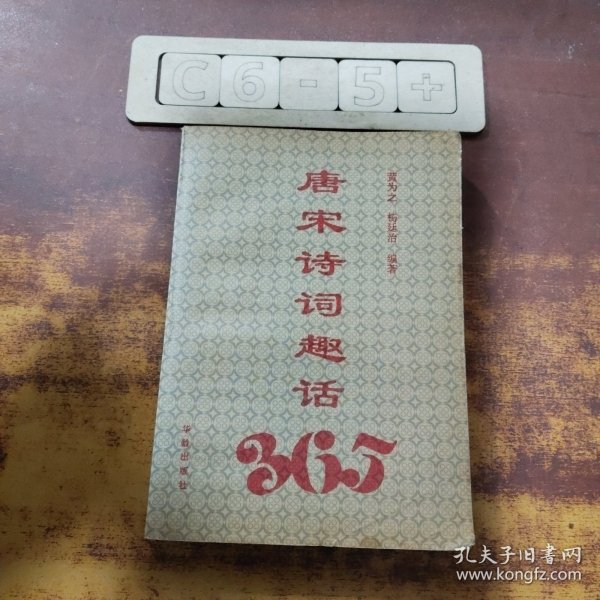 C6-5+
唐宋诗词趣话
365
黄为之 杨廷治 编著
华龄出版社
孔夫子旧书网
www.kongfz.com